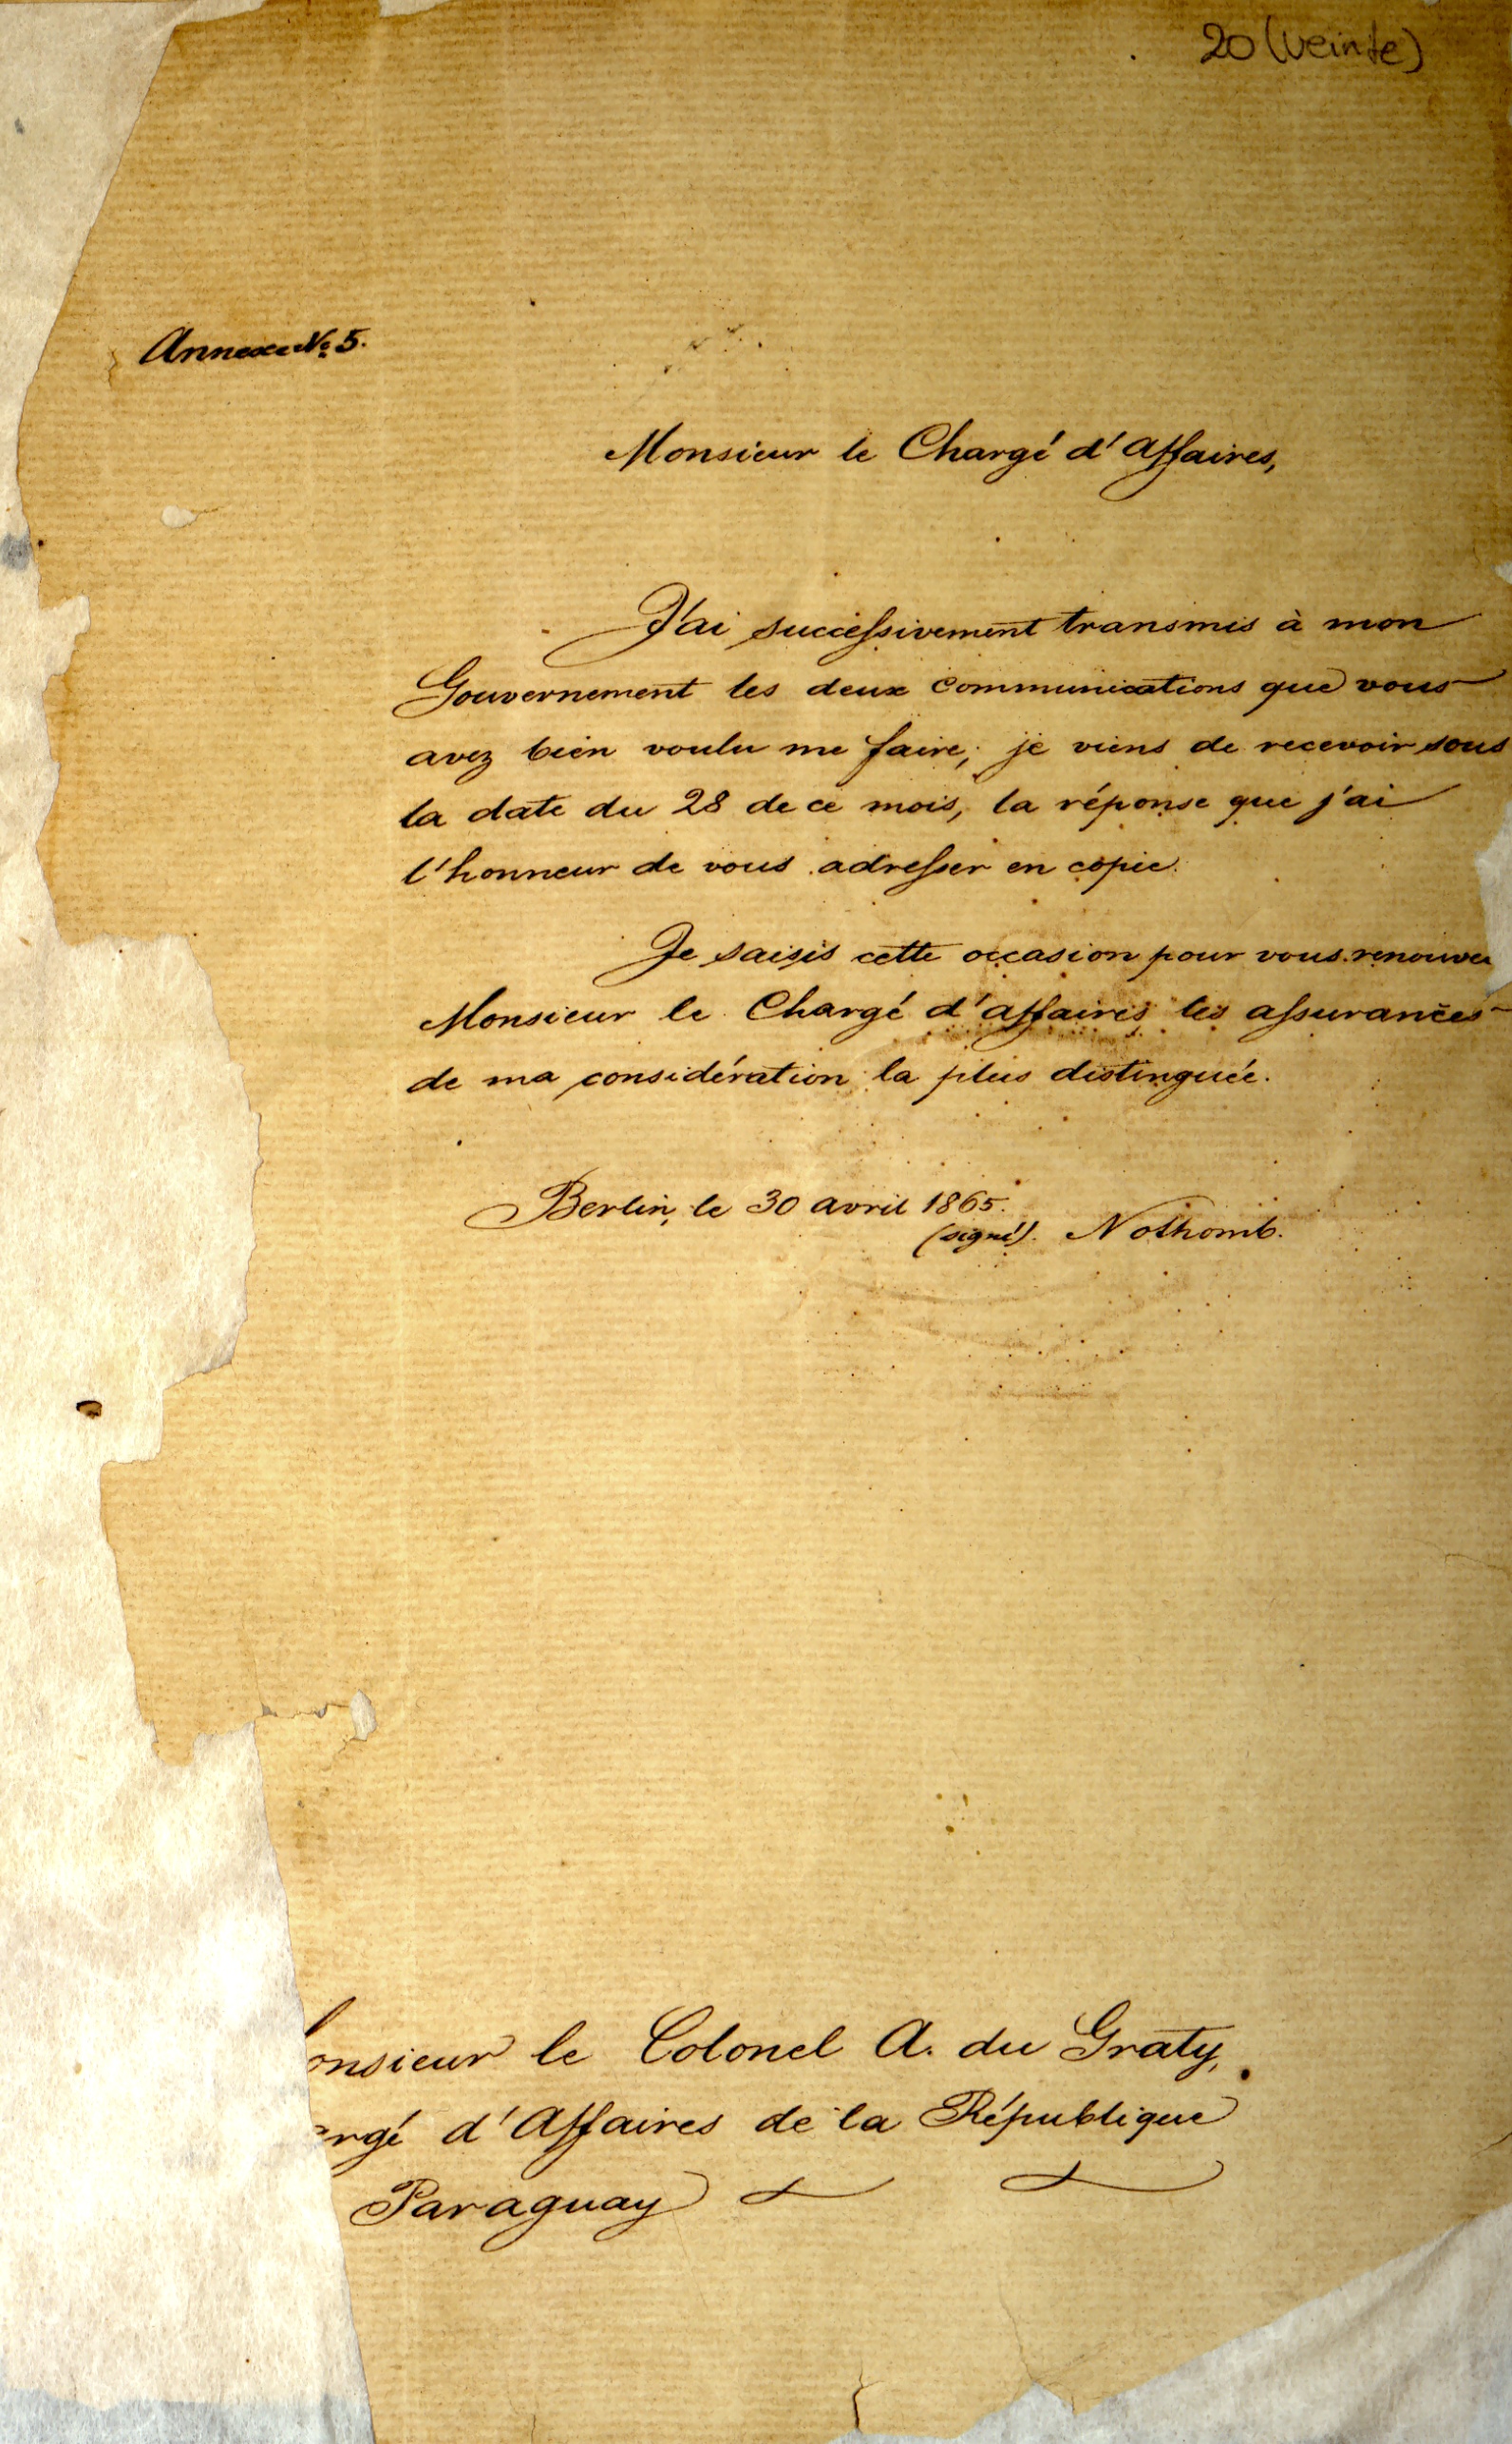 20 (veinte)
Annexe No 5.
Monsieur le Chargé d'Affaires,
J'ai successivement transmis à mon
Gouvernement les deux communications que vous
avez bien voulu me faire; je viens de recevoir sous
la date du 28 de ce mois, la réponse que j'ai
l'honneur de vous adresser en copie.
Je saisis cette occasion pour vous renouve
Monsieur le Chargé d'affaires les assurances
de ma considération la plus distinguée.
Berlin, le 30 avril 1865.
(signé). Nothomb.
onsieur le Colonel A. du Graty,
argé d'Affaires de la République
Paraguay